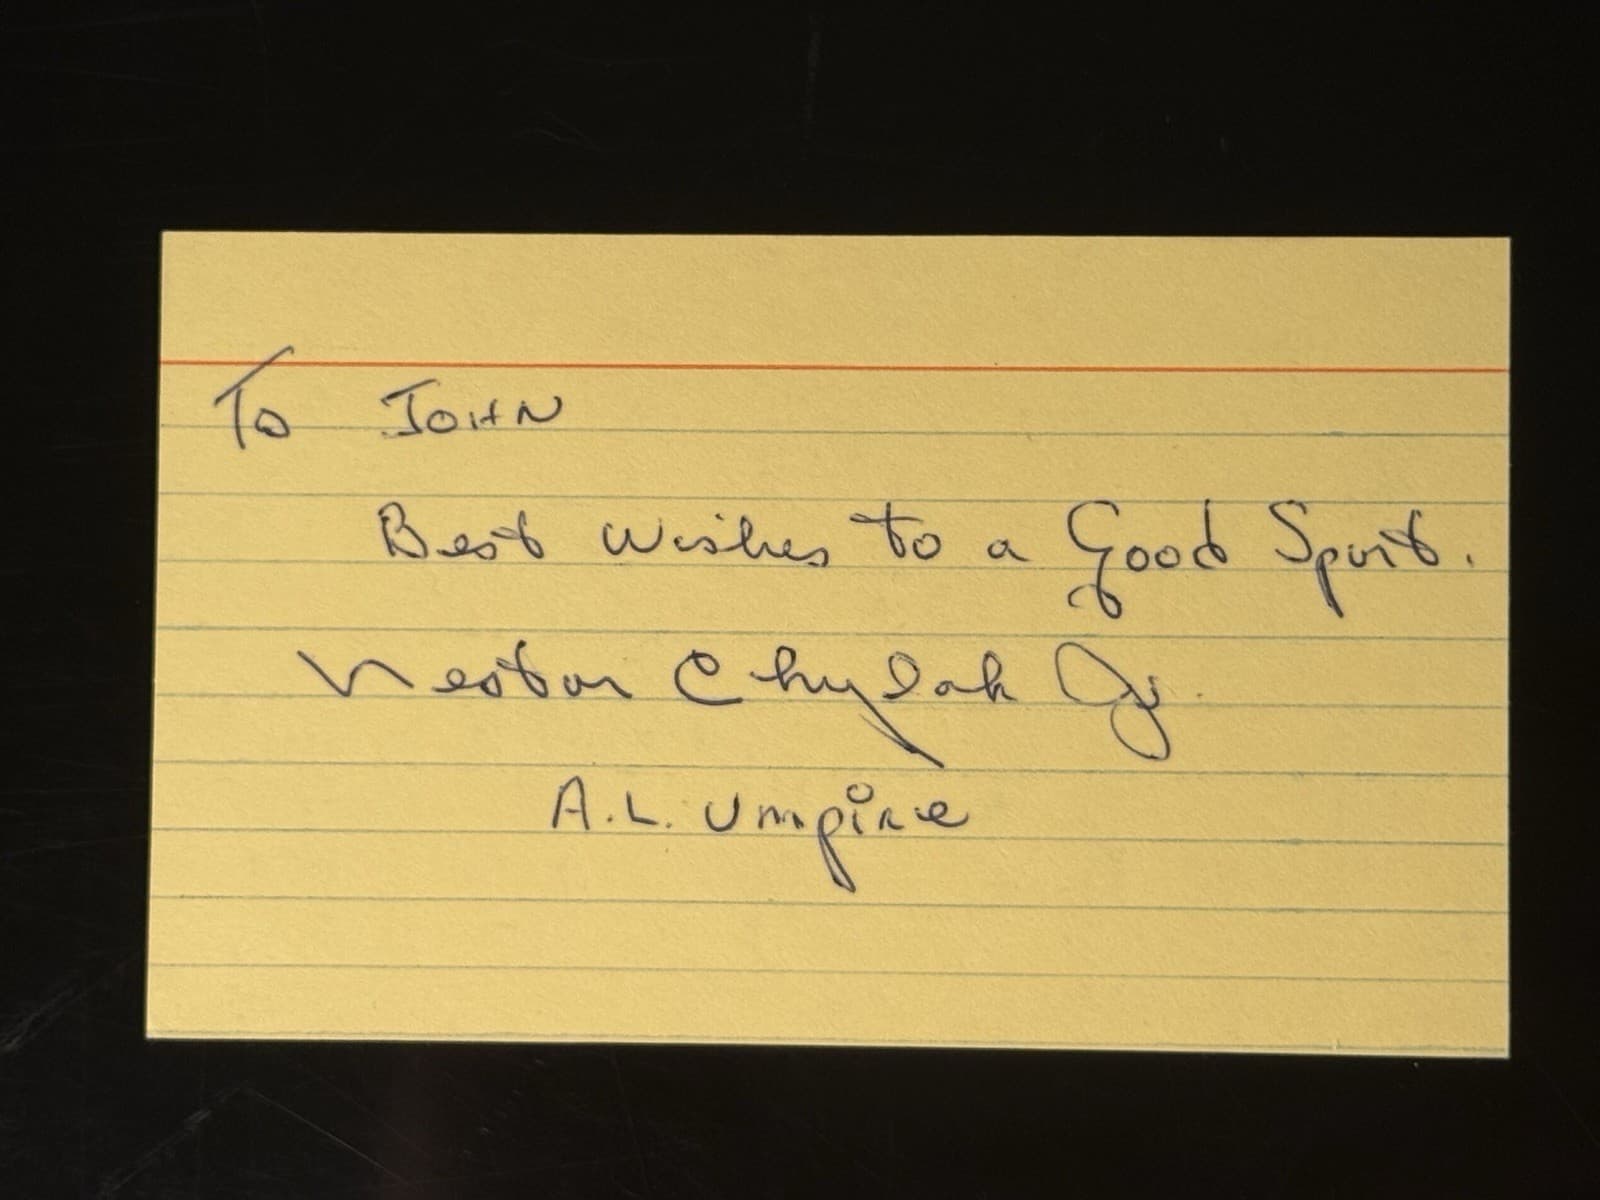 To JOHN
Best Wishes to a Good Sport.
Nestor Chylak Jr.
A.L. Umpire